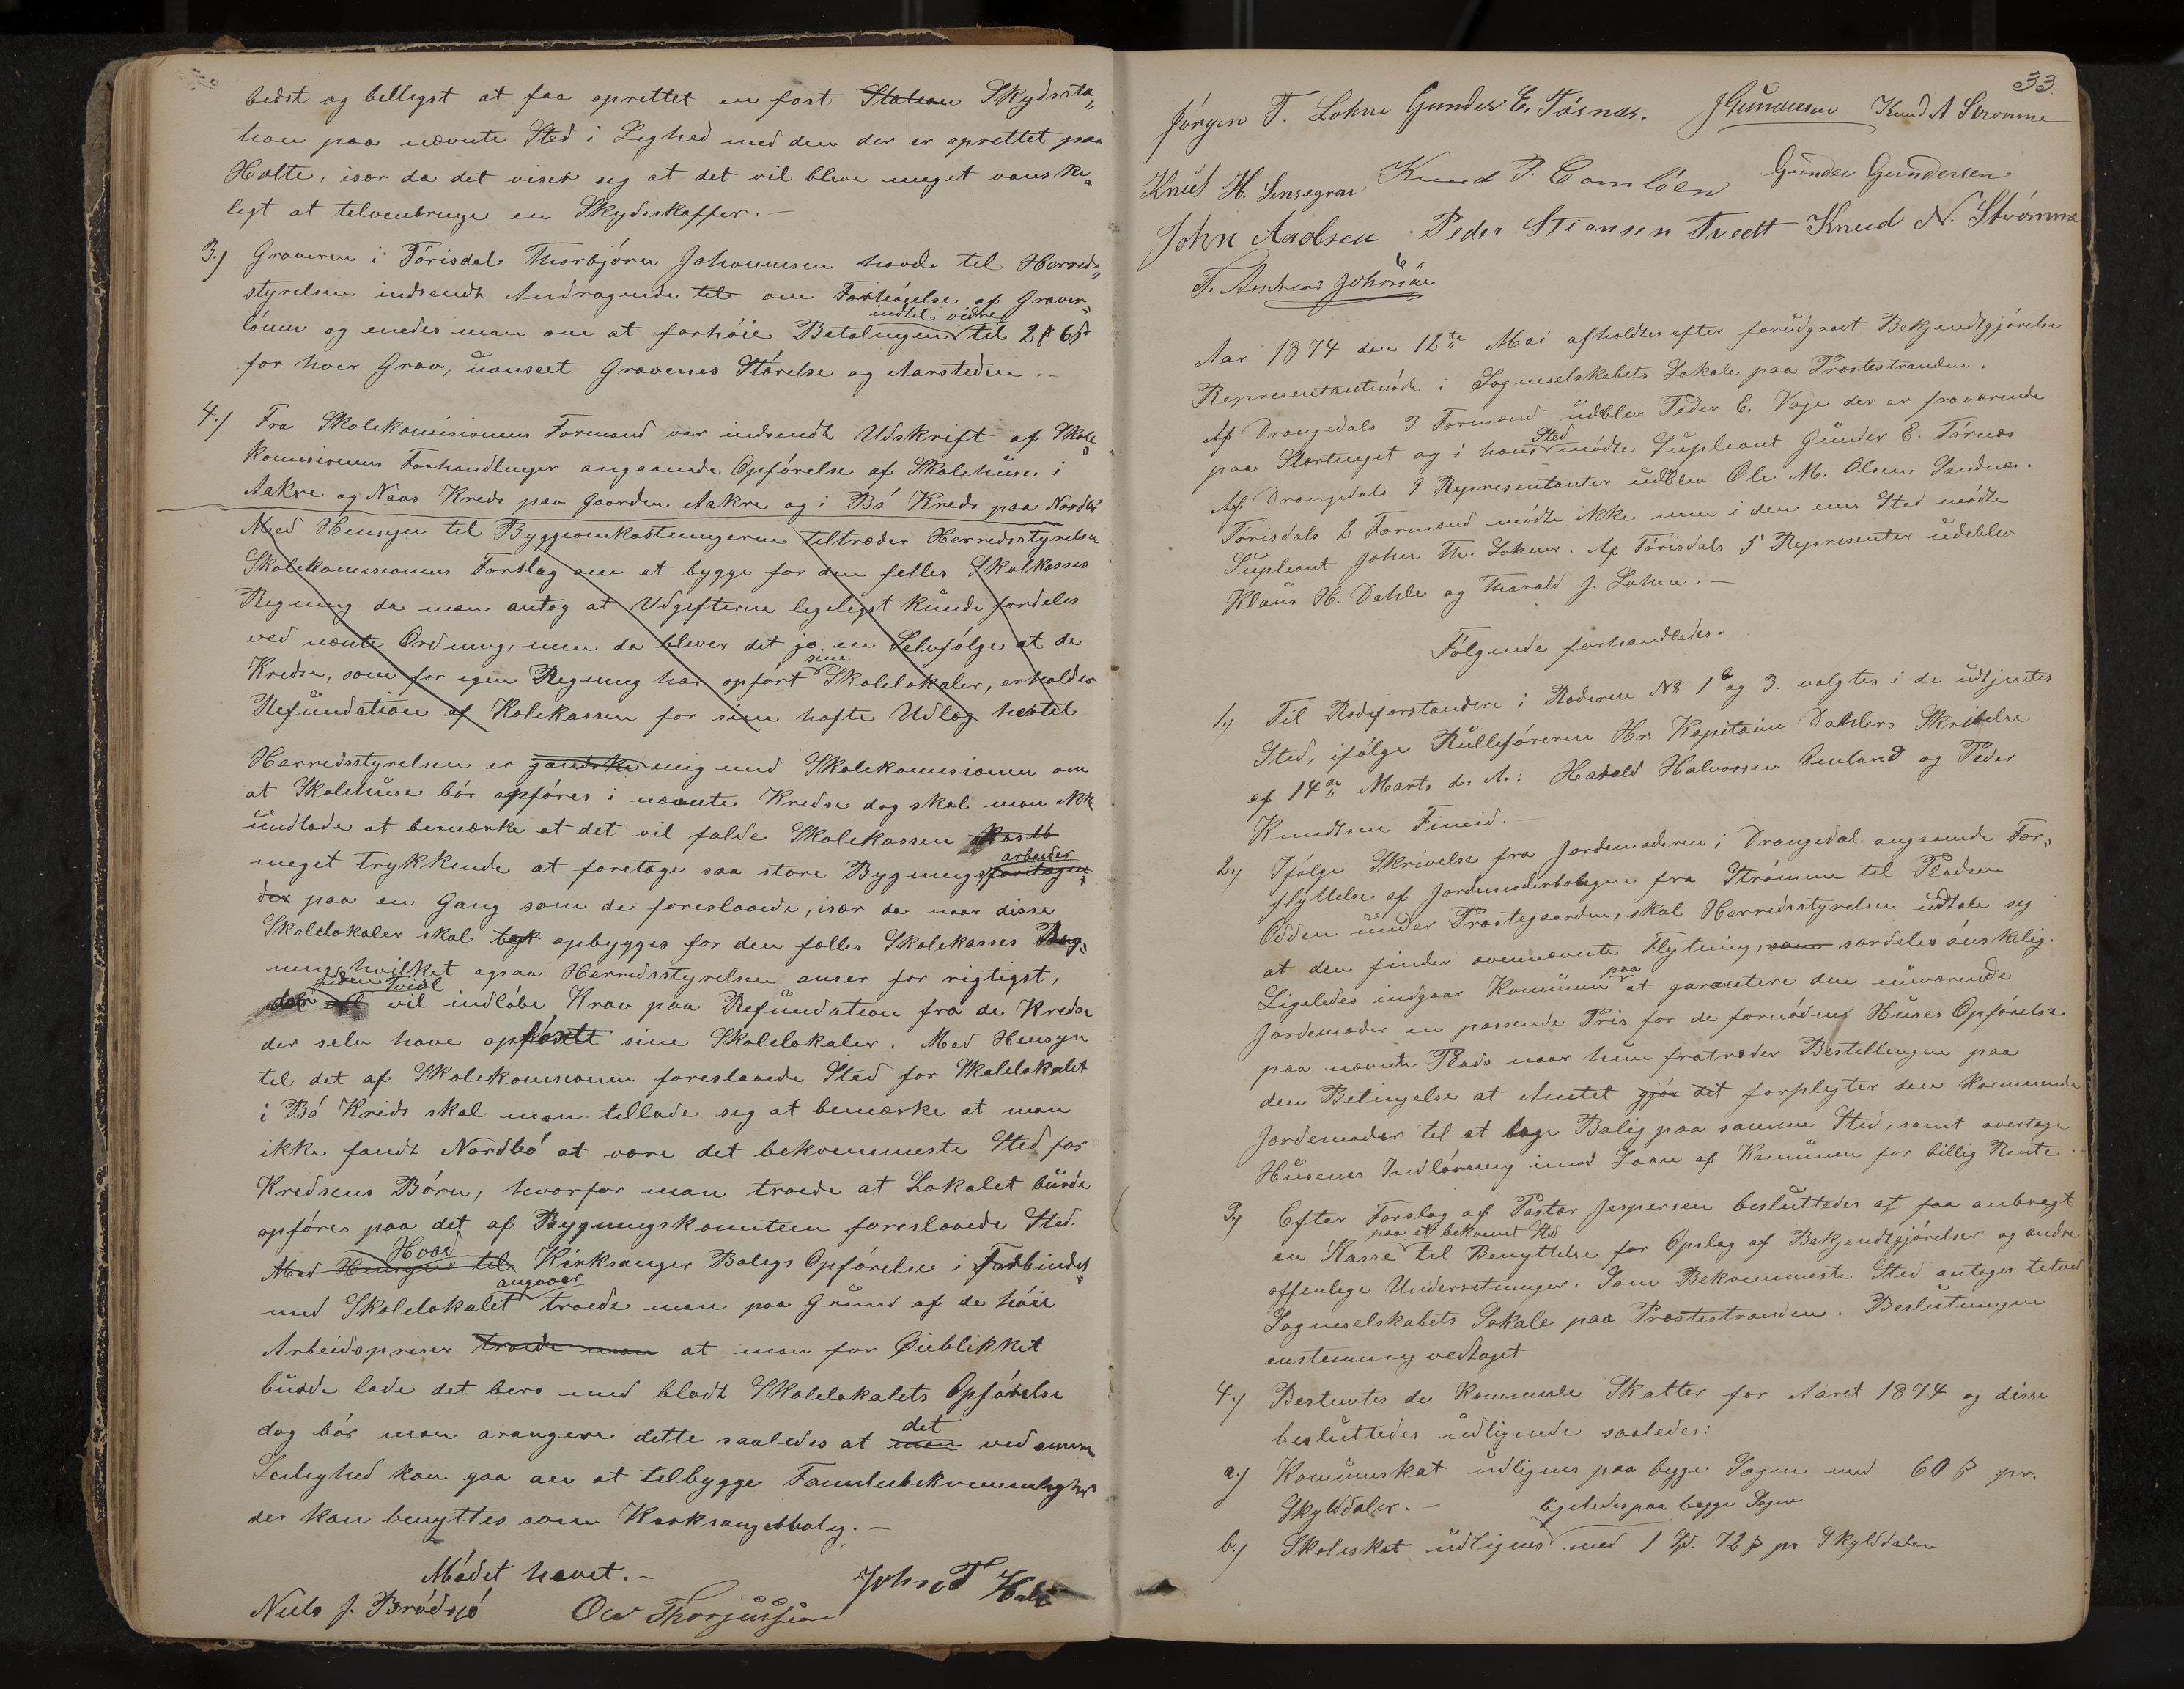 bedst og billigst at faa oprettet en fast Station Skydssta„
tion paa nævnte Sted i Lighed med den der er oprettet paa
Holte, især da det viser sig at det vil blive meget vanske„
ligt at tilveiebringe en Skydsskaffer.—
3.) Graveren i Tørisdal Thorbjørn Johannesen havde til Herreds„
styrelsen indsendt Andragende til om Forhøielse af Graver„
lønnen og enedes man om at forhøie Betalingen indtil videre til 2 ß
for hver Grav, uanseet Gravenes Størelse og Aarstiden.—
4.) Fra Skolekomisionens Formand var indsendt Udskrift af Skole„
komisionens Forhandlinger angaaende Opførelse af Skolehuse i
Aakre og Naas Kreds paa Gaarden Aakre og i Bø Kreds paa Nordbø
Med Hensyn til Byggeomkostningerne tiltræder Herredsstyrelsen
Skolekomisionens Forslag om at bygge for den felles Skolkasses
Regning da man antog at Udgifterne ligeligst kunde fordeles
ved nævnte Ordning, men da bliver det jo en Selvfølge at de
Kredse, som for egen Regning har opført sine Skolelokaler, erholder
Refundation af Kolekassen for sine hafte Udlæg
Herredsstyrelsen er gandske enig med Skolekomisionen om
at Skolehuse bør opføres i nævnte Kredse dog skal man ikke
undlade at bemærke at det vil falde Skolekassen
meget trykkende at foretage saa store Bygningsforetagen„ arbeider
der paa en Gang som de foreslaaede, især da naar disse
Skolelokaler skal opbygges for den fælles Skolekasses Reg„
ning hvilket ogsaa Herredsstyrelsen anser for rigtigst,
uden Tvivl vil indløbe Krav paa Refundation fra de Kredse
der selv have opført sine Skolelokaler. Med Hensyn
til det af Skolekomisionen foreslaaede Sted for Skolelokalet
i Bø Kreds skal man tillade seg at bemærke at man
ikke fandt Nordbø at være det bekvemmeste Sted for
Kredsens Børn, hvorfor man troede at Lokalet burde
opføres paa det af Bygningskomiteen foreslaaede Sted.
Med Hensyn til Hvad Kirksanger Boligs Opførelse i Forbindel„
med Skolelokalet angaaer troede man paa Grund af de høie
Arbeidspriser troede man at man for Øieblikket
burde lade det bero med blodt Skolelokalets Opførelse
dog bør man arangere dette saaledes at man det ved
Leilighed kan gaa an at tilbygge Familiebekvemmeligheder
der kan benyttes som Kirksangerbolig.—
Mødet hævet.—
Niels J. Brødsjø Ole Thorjussen John T Holte
33.
Jørgen T. Lohne Gunder E. Tørnæs. J Gundersen Knud A Strømme
Knud H. Knud P. Gunder Gundersen
John Aadsen Peder Stiansen Tvedt Knud N. Strømme
T. Andreas Johnsen
Aar 1874 den 12te Mai afholdtes efter forudgaaet Bekjendtgjørelse
Representantmøde i Sogneselskabets Lokale paa Præstestranden.
Af Drangedals 3 Formænd udeblev Peder E. Voje der er fraværende
paa Stortinget og i hans Sted mødte Supleant Gunder E. Tørnæs
Af Drangedals 9 Representanter udeblev Ole M. Olsen Sandnæs.
Tørisdals 2 Formænd mødte ikke men i den enes Sted mødte
Supleant John Th. Lohne. Af Tørisdals 5 Representer udeblev
Klaus H. Dahle og Tharald J. Lohne.—
Følgende forhandledes.
1.) Til Rodeforstandere i Roderne No 1 og 3. valgtes i de udtjentes
Sted, ifølge Rulleførerens Hr. Kapitain Dahlers Skrivelse
af 14de Marts d. A: Harald Halvorsen Omland og Peder
Knudtsen Fineid.—
2.) Ifølge Skrivelse fra Jordemoderen i Drangedal angaaende For„
flyttelse af Jordemoderboligen fra Strømme til Pladsen
Odden under Præstegaarden, skal Herredsstyrelsen udtale sig
at den finder ovennævnte Flytning, som særdeles ønsklig.
Ligeledes indgaar Komunen paa at garantere den nuværende
Jordemoder en passende Pris for de fornødne Huses Opførelse
paa nævnte Plads naar hun fratræder Bestillingen paa
den Betingelse at Amtet gjør det forplygter den kommende
Jordemoder til at tage Bolig paa samme Sted, samt overtage
Husenes Indløsning imod Laan af Komunen for billig Rente.
3.) Efter Forslag af Pastor Jespersen besluttedes at faa anbragt
en Kasse paa et bekvemt Sted til Benyttelse for Opslag af Bekjendtgjørelser og andre
offenlige Underretninger. Som Bekvemmeste Sted antages tetved
Sogneselskabets Lokale paa Præstestranden. Beslutningen
enstemmig vedtaget
4.) Bestemtes de Kommunle Skatter for Aaret 1874 og disse
besluttedes udlignede saaledes:
a.) Komuneskat udlignes paa begge Sogne med 60 ß pr.
Skylddaler.—
b.) Skoleskat udlignes ligeledes paa begge Sogne med 1 Spd. 72 ß pr Skylddaler